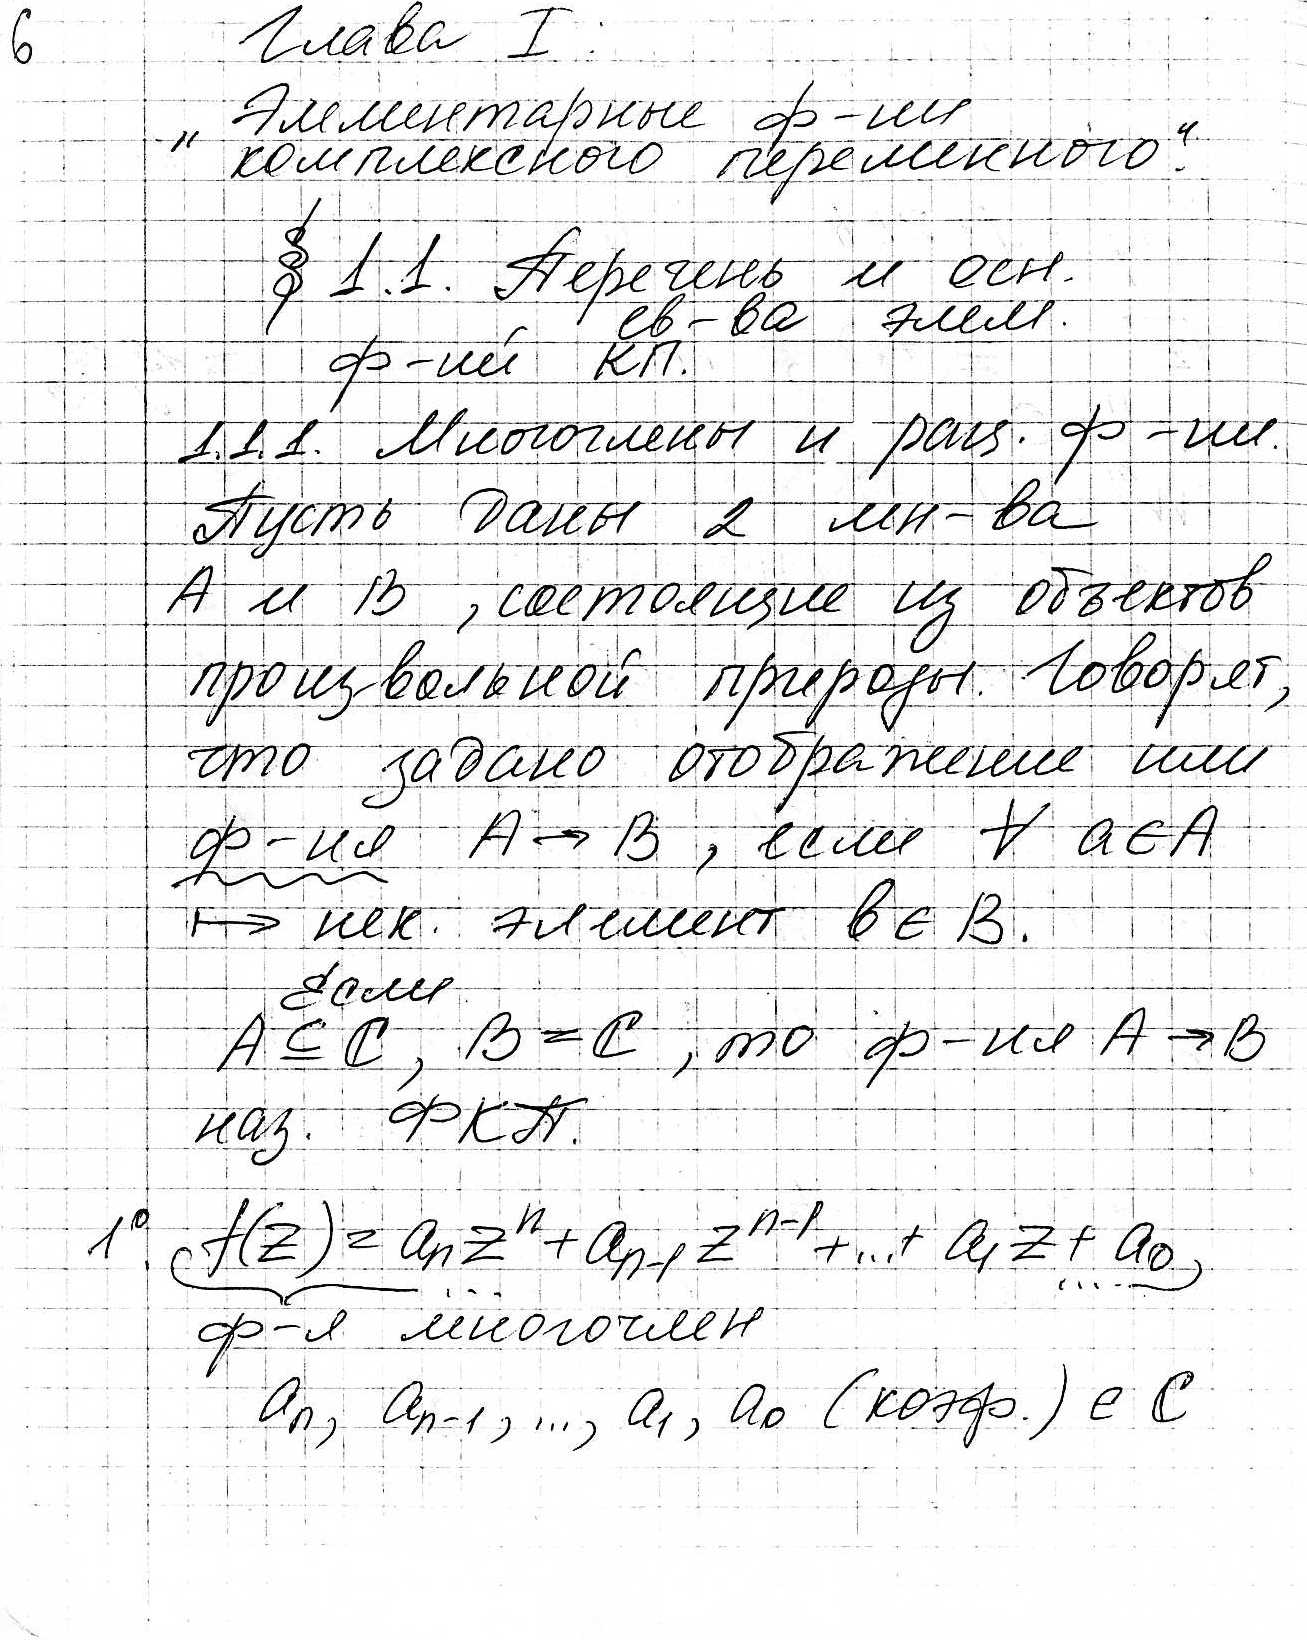 6
Глава I:
Элементарные ф-ии
" комплексного переменного".
§ 1.1. Перечень и осн.
св-ва элем.
ф-ий КП.
1.1.1. Многочлены и рац. ф-ии.
Пусть даны 2 мн-ва
A и B, состоящие из объектов
произвольной природы. Говорят,
что задано отображение или
ф-ия A → B, если ∀ a ∈ A
↦ нек. элемент b ∈ B.
Если
A ⊆ ℂ, B = ℂ, то ф-ия A → B
наз. ФКП.
1°. f(z) = aₙzⁿ + aₙ₋₁zⁿ⁻¹ + ... + a₁z + a₀,
ф-я многочлен
aₙ, aₙ₋₁, ..., a₁, a₀ (коэф.) ∈ ℂ